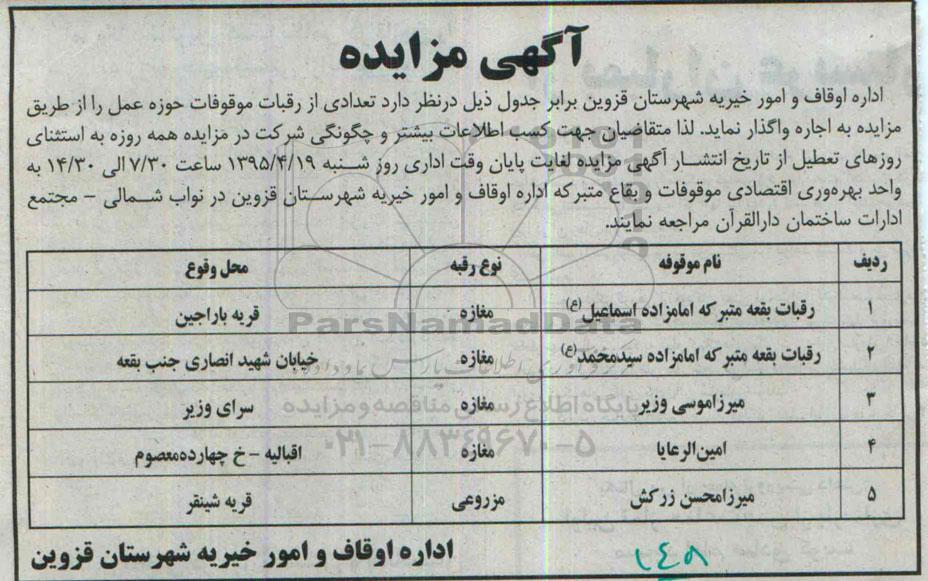 آگهی مزایده
اداره اوقاف و امور خیریه شهرستان قزوین برابر جدول ذیل درنظر دارد تعدادی از رقبات موقوفات حوزه عمل را از طریق
مزایده به اجاره واگذار نماید. لذا متقاضیان جهت کسب اطلاعات بیشتر و چگونگی شرکت در مزایده همه روزه به استثنای
روزهای تعطیل از تاریخ انتشار آگهی مزایده لغایت پایان وقت اداری روز شنبه ۱۳۹۵/۴/۱۹ ساعت ۷/۳۰ الی ۱۴/۳۰ به
واحد بهره‌وری اقتصادی موقوفات و بقاع متبرکه اداره اوقاف و امور خیریه شهرستان قزوین در نواب شمالی - مجتمع
ادارات ساختمان دارالقرآن مراجعه نمایند.
ردیف نام موقوفه نوع رقبه محل وقوع
۱ رقبات بقعه متبرکه امامزاده اسماعیل (ع) مغازه قریه باراجین
ParsNamadData
۲ رقبات بقعه متبرکه امامزاده سیدمحمد (ع) مغازه خیابان شهید انصاری جنب بقعه
۳ میرزاموسی وزیر مغازه سرای وزیر
پایگاه اطلاع رسانی مناقصه و مزایده
۴ امین‌الرعایا مغازه اقبالیه - خ چهارده‌معصوم
۰۲۱-۸۸۳۴۹۶۷۰-۵
۵ میرزامحسن زرکش مزروعی قریه شینقر
اداره اوقاف و امور خیریه شهرستان قزوین